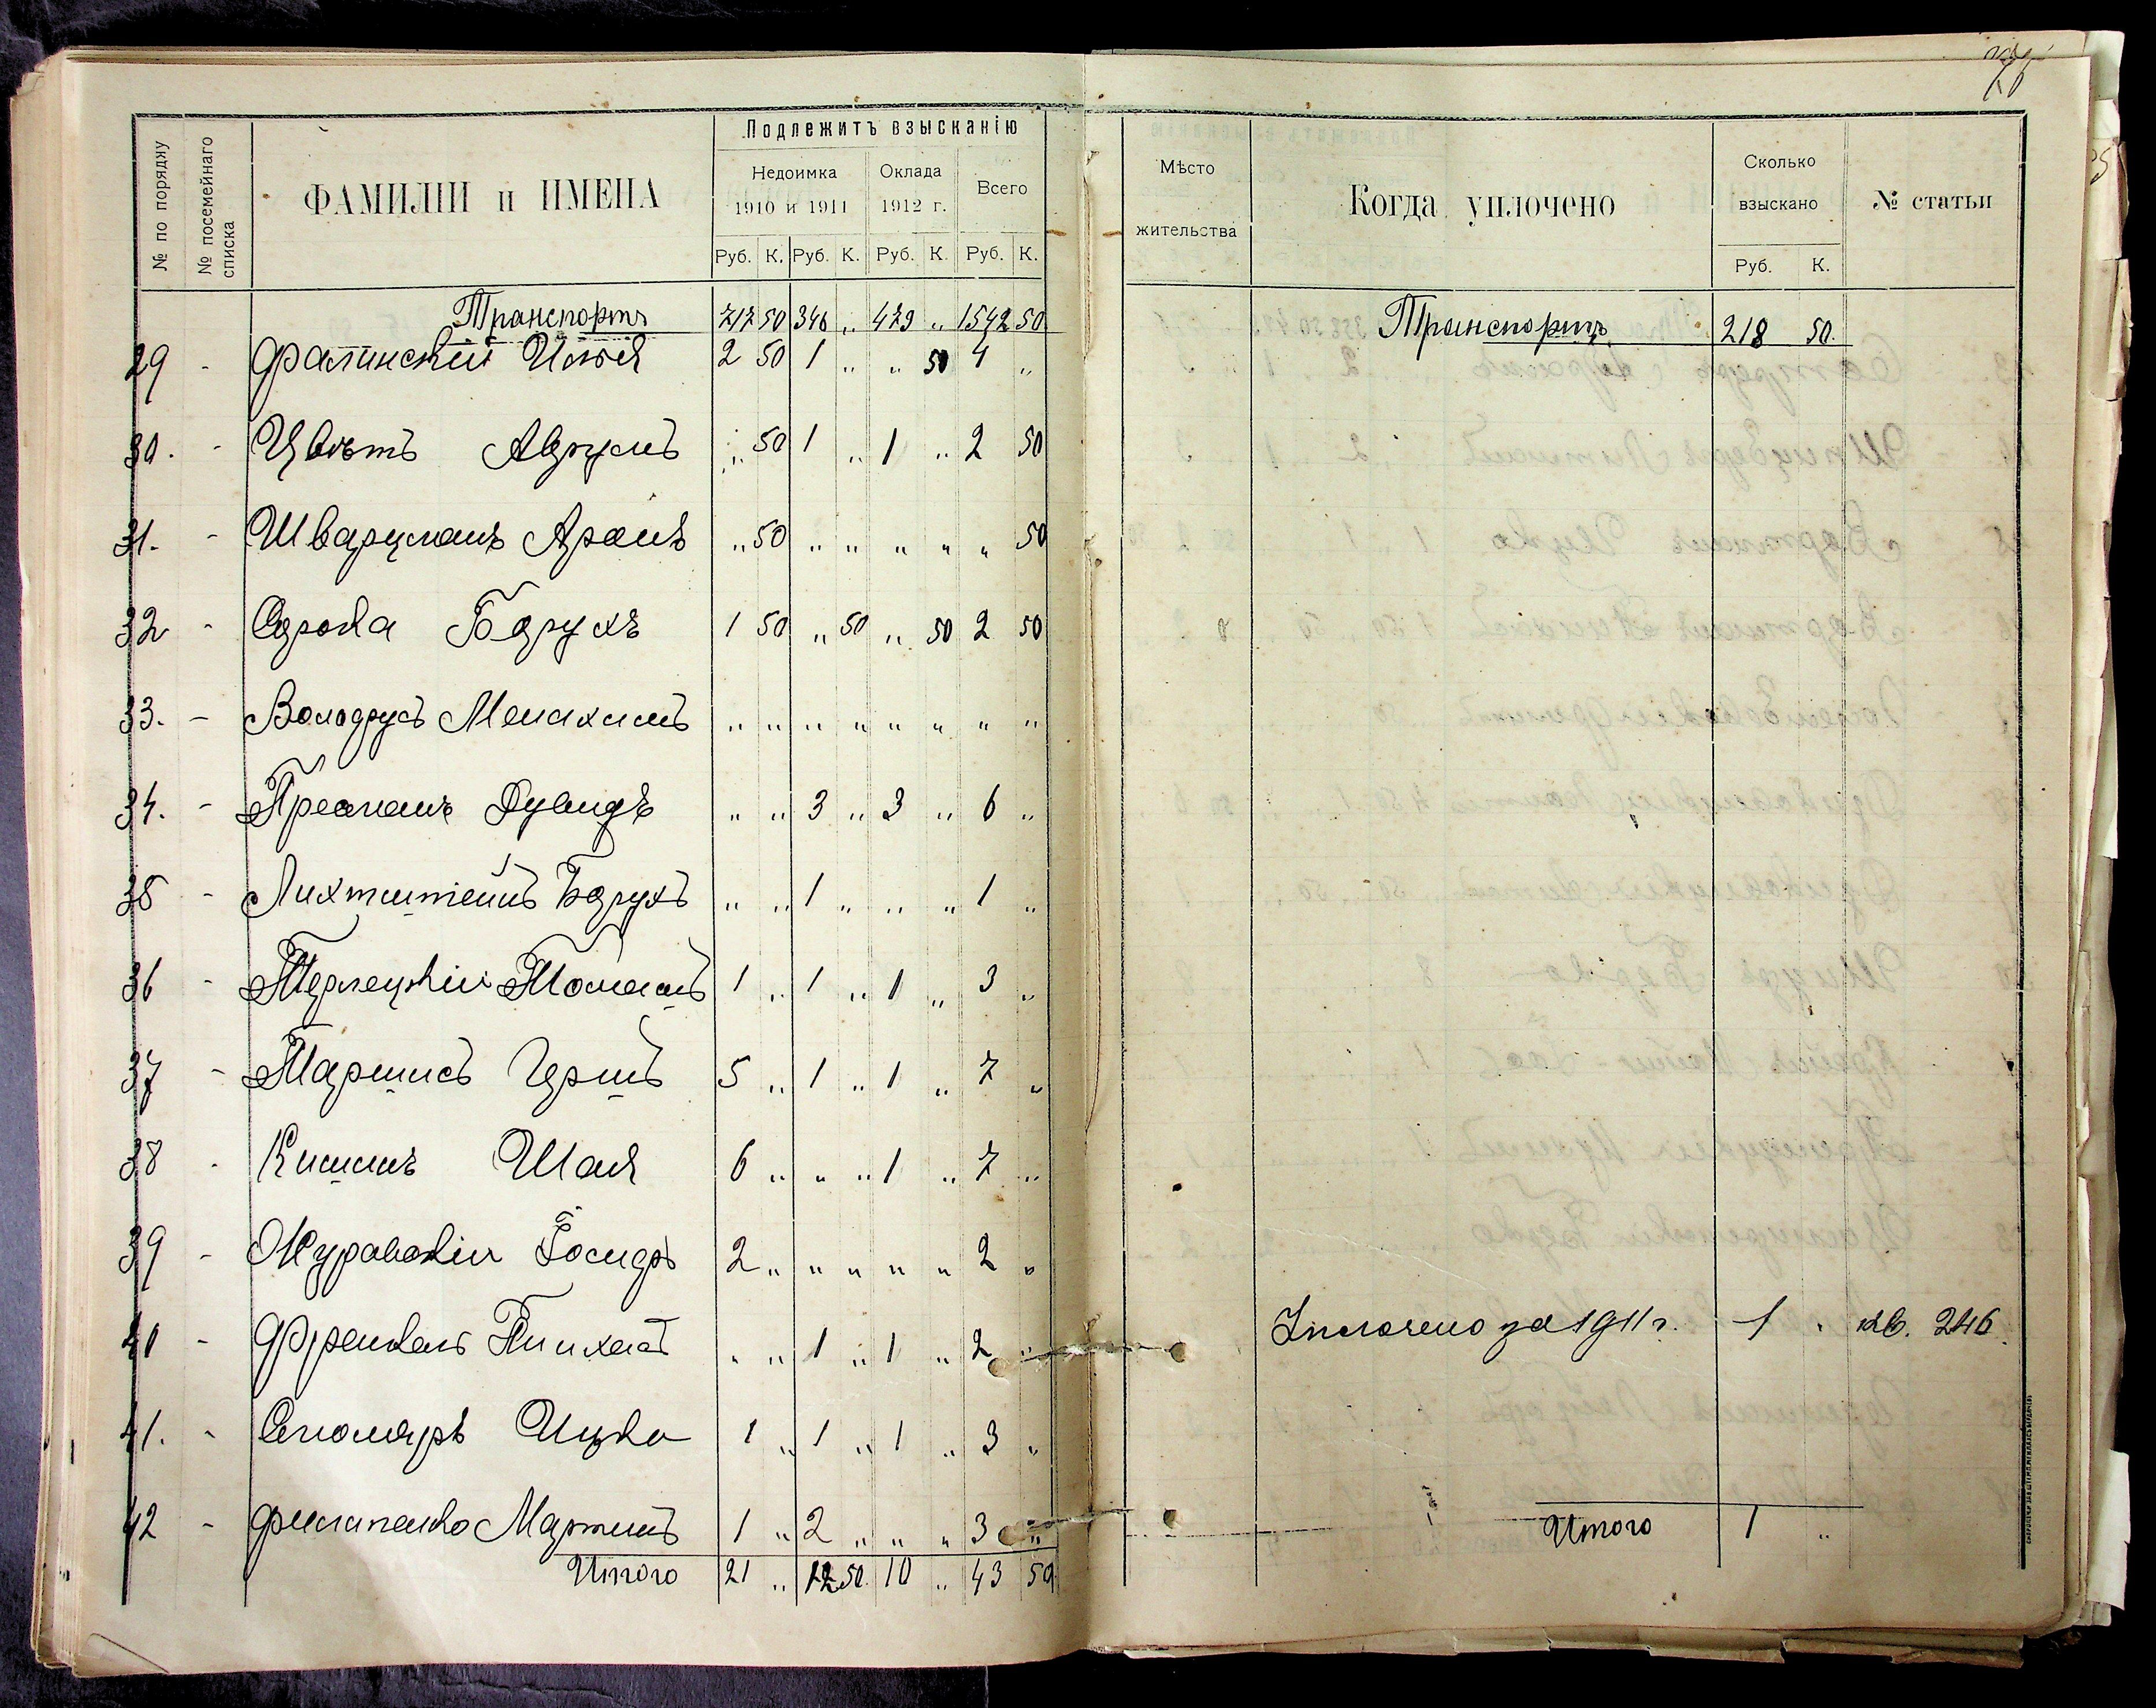 Подлежитъ взысканію
№ по порядку
№ посемейнаго списка
ФАМИЛІИ и ИМЕНА
Недоимка
1910 и 1911
Оклада
1912 г.
Всего
Руб. К. Руб. К. Руб. К. Руб. К.
Мѣсто
жительства
Когда уплочено
Сколько
взыскано
Руб. К.
№ статьи
Транспортъ 717 50 346 „ 479 „ 1542 50
Транспортъ 218 50.
29 - Фалинскій 2 50 1 „ „ 50 4 „
30. - Цвѣтъ Аврумъ „ 50 1 „ 1 „ 2 50
31. - Шварцманъ Аронъ „ 50 „ „ „ „ „ 50
32 - Сорока Борухъ 1 50 „ 50 „ 50 2 50
33. - Володрусъ Менахимъ „ „ „ „ „ „ „ „
34. - Пресманъ Дувидъ „ „ 3 „ 3 „ 6 „
35 - Лихтштейнъ Борухъ „ „ 1 „ „ „ 1 „
36 - Терлецкій 1 „ 1 „ 1 „ 3 „
37 - Маршисъ Гершъ 5 „ 1 „ 1 „ 7 „
38 - Шая 6 „ „ „ 1 „ 7 „
39 - Журавскій Іосифъ 2 „ „ „ „ „ 2 „
40 - Френкель Пинхасъ „ „ 1 „ 1 „ 2 „
Уплочено за 1911 г. 1 „ кв. 246.
41. - Спомаръ Ицко 1 „ 1 „ 1 „ 3 „
42 - Филипенко Мартинъ 1 „ 2 „ „ „ 3 „
Итого 21 „ 12 50 10 „ 43 50
Итого 1 „